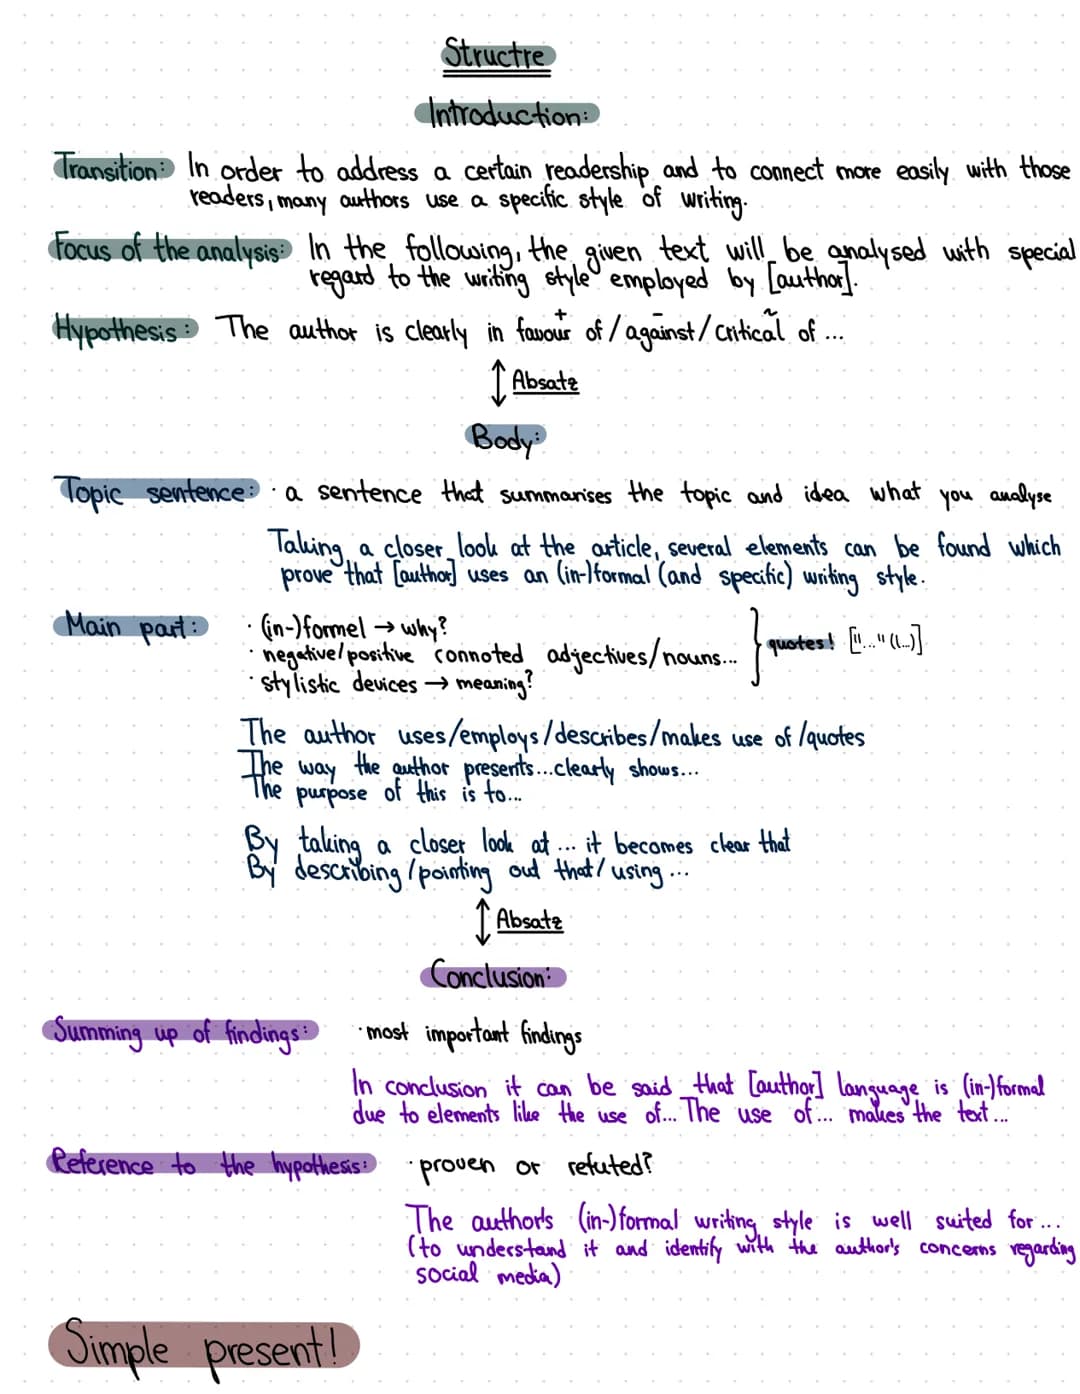 Structre
Introduction:
Transition: In order to address a certain readership and to connect more easily with those
readers, many authors use a specific style of writing.
Focus of the analysis: In the following, the given text will be analysed with special
regard to the writing style employed by [author].
+ - ~
Hypothesis: The author is clearly in favour of / against / critical of ...
↕ Absatz
Body:
Topic sentence: · a sentence that summarises the topic and idea what you analyse
Taking a closer look at the article, several elements can be found which
prove that [author] uses an (in-)formal (and specific) writing style.
Main part: · (in-)formel → why?
· negative/positive connoted adjectives/nouns... } quotes! ["..." (l...)]
· stylistic devices → meaning?
The author uses/employs/describes/makes use of /quotes
The way the author presents...clearly shows...
The purpose of this is to...
By taking a closer look at ... it becomes clear that
By describing /pointing out that/ using ...
↕ Absatz
Conclusion:
Summing up of findings: · most important findings
In conclusion it can be said that [author] language is (in-)formal
due to elements like the use of... The use of ... makes the text ...
Reference to the hypothesis: · proven or refuted?
The author's (in-)formal writing style is well suited for ...
(to understand it and identify with the author's concerns regarding
social media)
Simple present!